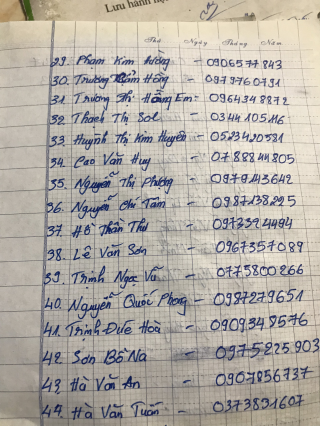 Lưu hành
Thứ Ngày Tháng Năm
29. Phạm Kim Hường - 0906577843
30. Trương Cẩm Hồng - 0979760791
31. Trương Thị Hồng Em - 0964348872
32. Thạch Thị Sol - 0344105116
33. Huỳnh Thị Kim Huyền - 0523420581
34. Cao Văn Huy - 0788844805
35. Nguyễn Thị Phương - 0979143642
36. Nguyễn Chí Tâm - 0987138225
37. Hồ Thần Thu - 0973394494
38. Lê Văn Sơn - 0967357089
39. Trịnh Ngọc Vũ - 0775800266
40. Nguyễn Quốc Phong - 0987279651
41. Trịnh Đức Hoà - 0909348576
42. Sơn Bô Na - 0975825903
43. Hà Văn An - 0907856737
44. Hà Văn Tuấn - 0373891607